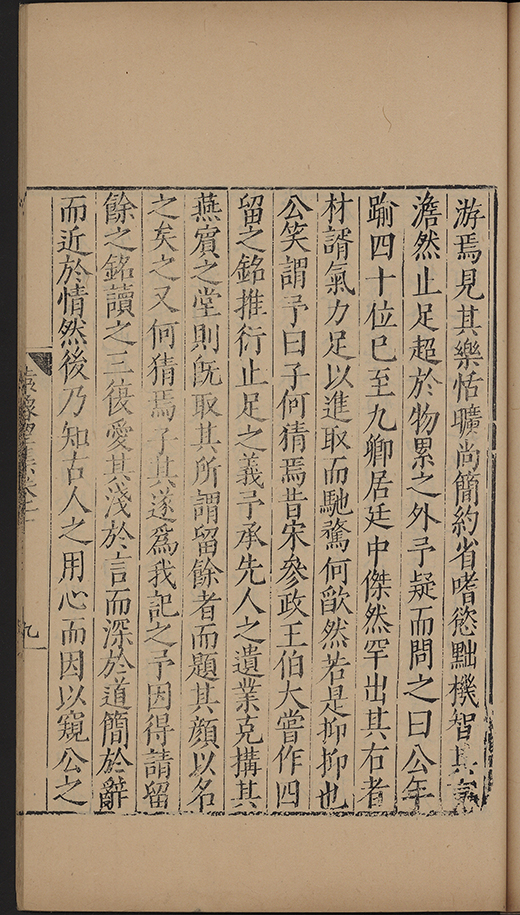 游焉見其樂恬曠尚簡約省嗜慾黜機智其言
澹然止足超於物累之外予疑而問之曰公年
踰四十位已至九卿居廷中傑然罕出其右者
材諝氣力足以進取而馳騖何歛然若是抑抑也
公笑謂予曰子何猜焉昔宋參政王伯大嘗作四
留之銘推衍止足之義予承先人之遺業克搆其
燕賔之堂則既取其所謂留餘者而題其顔以名
之矣之又何猜焉子其遂爲我記之予因得請留
餘之銘讀之三復愛其淺於言而深於道簡於辭
而近於情然後乃知古人之用心而因以窺公之
袁豫
集卷
九